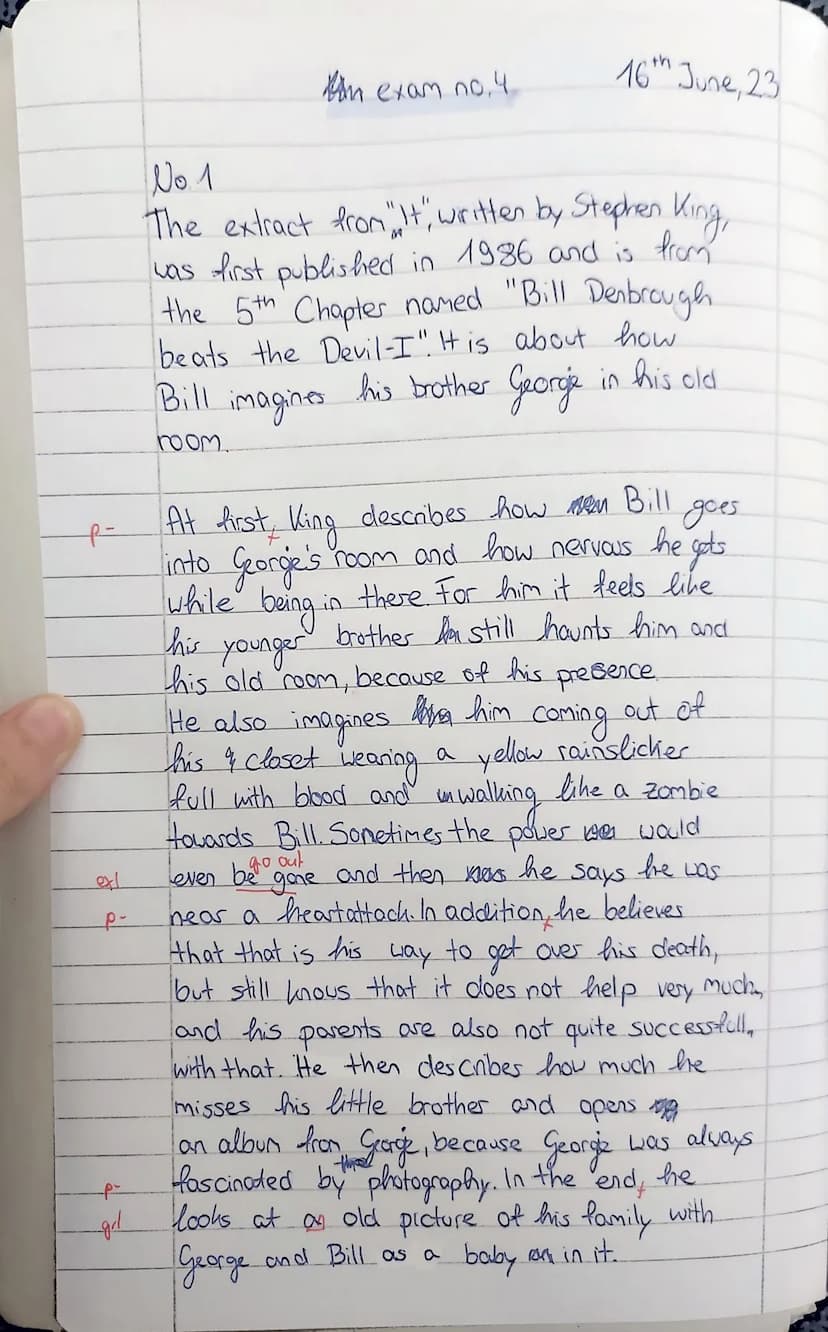 exam no.4 16th June, 23
No 1
The extract from "It", written by Stephen King,
was first published in 1986 and is from
the 5th Chapter named "Bill Denbrough
beats the Devil-I". It is about how
Bill imagines his brother George in his old
room.
p- At first, King describes how Bill goes
into George's room and how nervous he gets
while being in there. For him it feels like
his younger brother still haunts him and
his old room, because of his presence.
He also imagines him coming out of
his closet wearing a yellow rainslicker
full with blood and walking like a zombie
towards Bill. Sometimes the power would
go out
ex/ even be gone and then he says he was
p- near a heartattack. In addition, he believes
that that is his way to get over his death,
but still knows that it does not help very much,
and his parents are also not quite successfull
with that. He then describes how much he
misses his little brother and opens
an album from George, because George was always
fascinated by photography. In the end, he
p-
gr/ looks at an old picture of his family with
George and Bill as a baby in it.